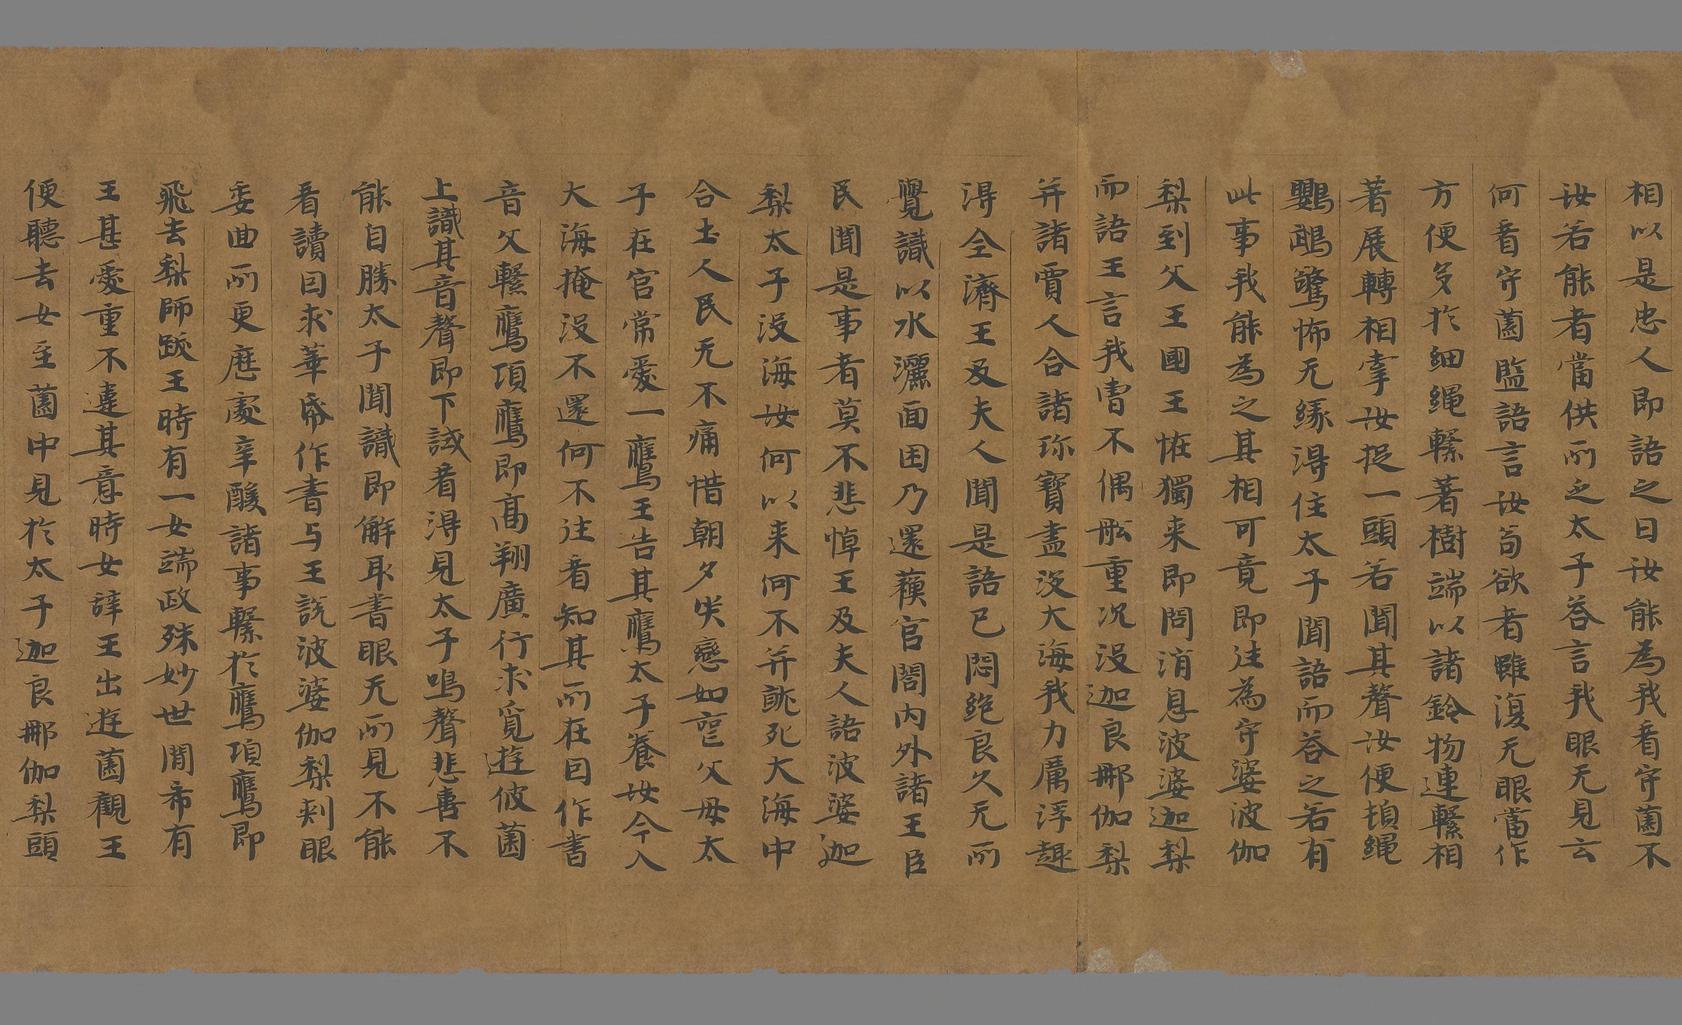 相以是忠人即語之曰汝能為我看守薗不
汝若能者當供所之太子荅言我眼无見云
何看守薗監語言汝苟欲者雖復无眼當作
方便多於細繩繫著樹端以諸鈴物連繫相
著展轉相牽汝捉一頭若聞其聲汝便頓繩
鸚鵡驚怖无緣得住太子聞語而荅之若有
此事我能為之其相可竟即往為守婆波伽
梨到父王國王恠獨来即問消息波婆迦梨
而語王言我曹不偶舩重沉没迦良那伽梨
并諸賈人合諸珎寶盡没大海我力厲浮趣
得全濟王及夫人聞是語已悶絶良久无所
覺識以水灑面困乃還蘓官閤内外諸王臣
民聞是事者莫不悲悼王及夫人語波婆迦
梨太子没海汝何以来何不并就死大海中
合土人民无不痛惜朝夕哭戀如喪父母太
子在官常愛一鷹王告其鷹太子養汝今入
大海掩没不還何不往看知其所在因作書
音父繫鷹項鷹即髙翔廣行求覓遊彼薗
上識其音聲即下試看得見太子鳴聲悲喜不
能自勝太子聞識即解取書眼无所見不能
看讀因求華帋作書与王說波婆伽梨剌眼
委曲所更歷處辛酸諸事繫於鷹項鷹即
飛去梨師跋王時有一女端政殊妙世間希有
王甚愛重不違其意時女辞王出遊薗觀王
便聽去女至薗中見於太子迦良那伽梨頭